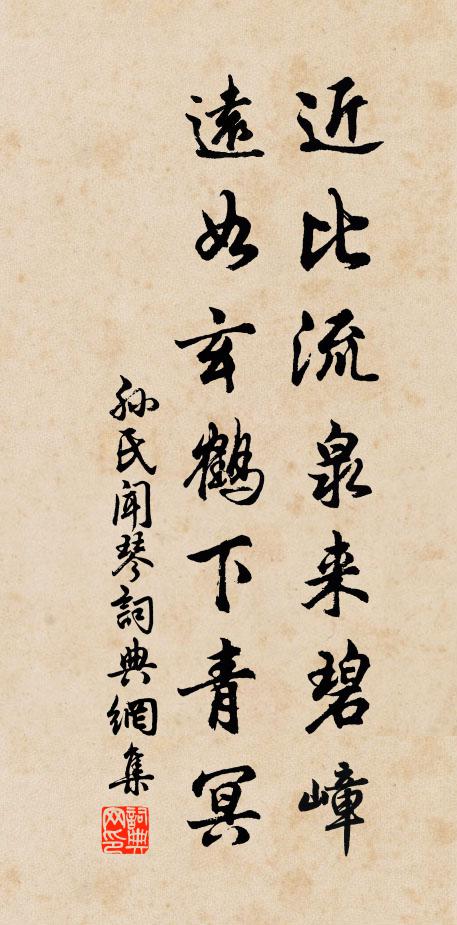 近比流泉来碧嶂
遠如玄鶴下青冥
孙氏闻琴詞典網集
詞典網印